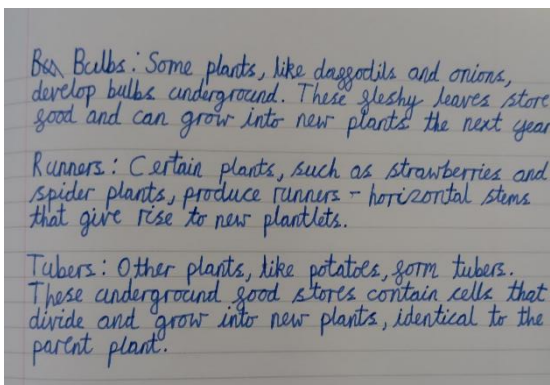 Bulbs: Some plants, like daffodils and onions,
develop bulbs underground. These fleshy leaves store
food and can grow into new plants the next year
Runners: Certain plants, such as strawberries and
spider plants, produce runners - horizontal stems
that give rise to new plantlets.
Tubers: Other plants, like potatoes, form tubers.
These underground food stores contain cells that
divide and grow into new plants, identical to the
parent plant.